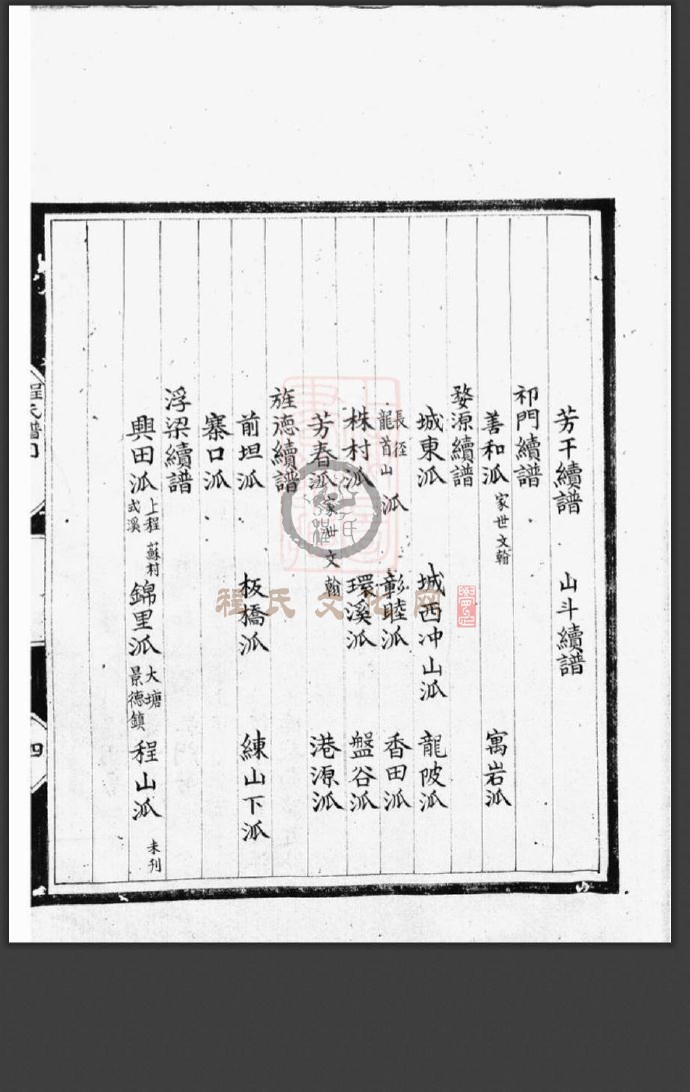 芳干續譜 山斗續譜
祁門續譜
善和派 家世文翰 寓岩派
婺源續譜
城東派 城西冲山派 龍陂派
長徑 龍首山 派 彰睦派 香田派
株村派 環溪派 盤谷派
芳春派 家世文翰 港源派
旌德續譜
前坦派 板橋派 練山下派
寨口派
浮梁續譜
興田派 上程 蘇村 式溪 錦里派 大塘 景德鎮 程山派 未刊
程氏譜
四
程氏文化网